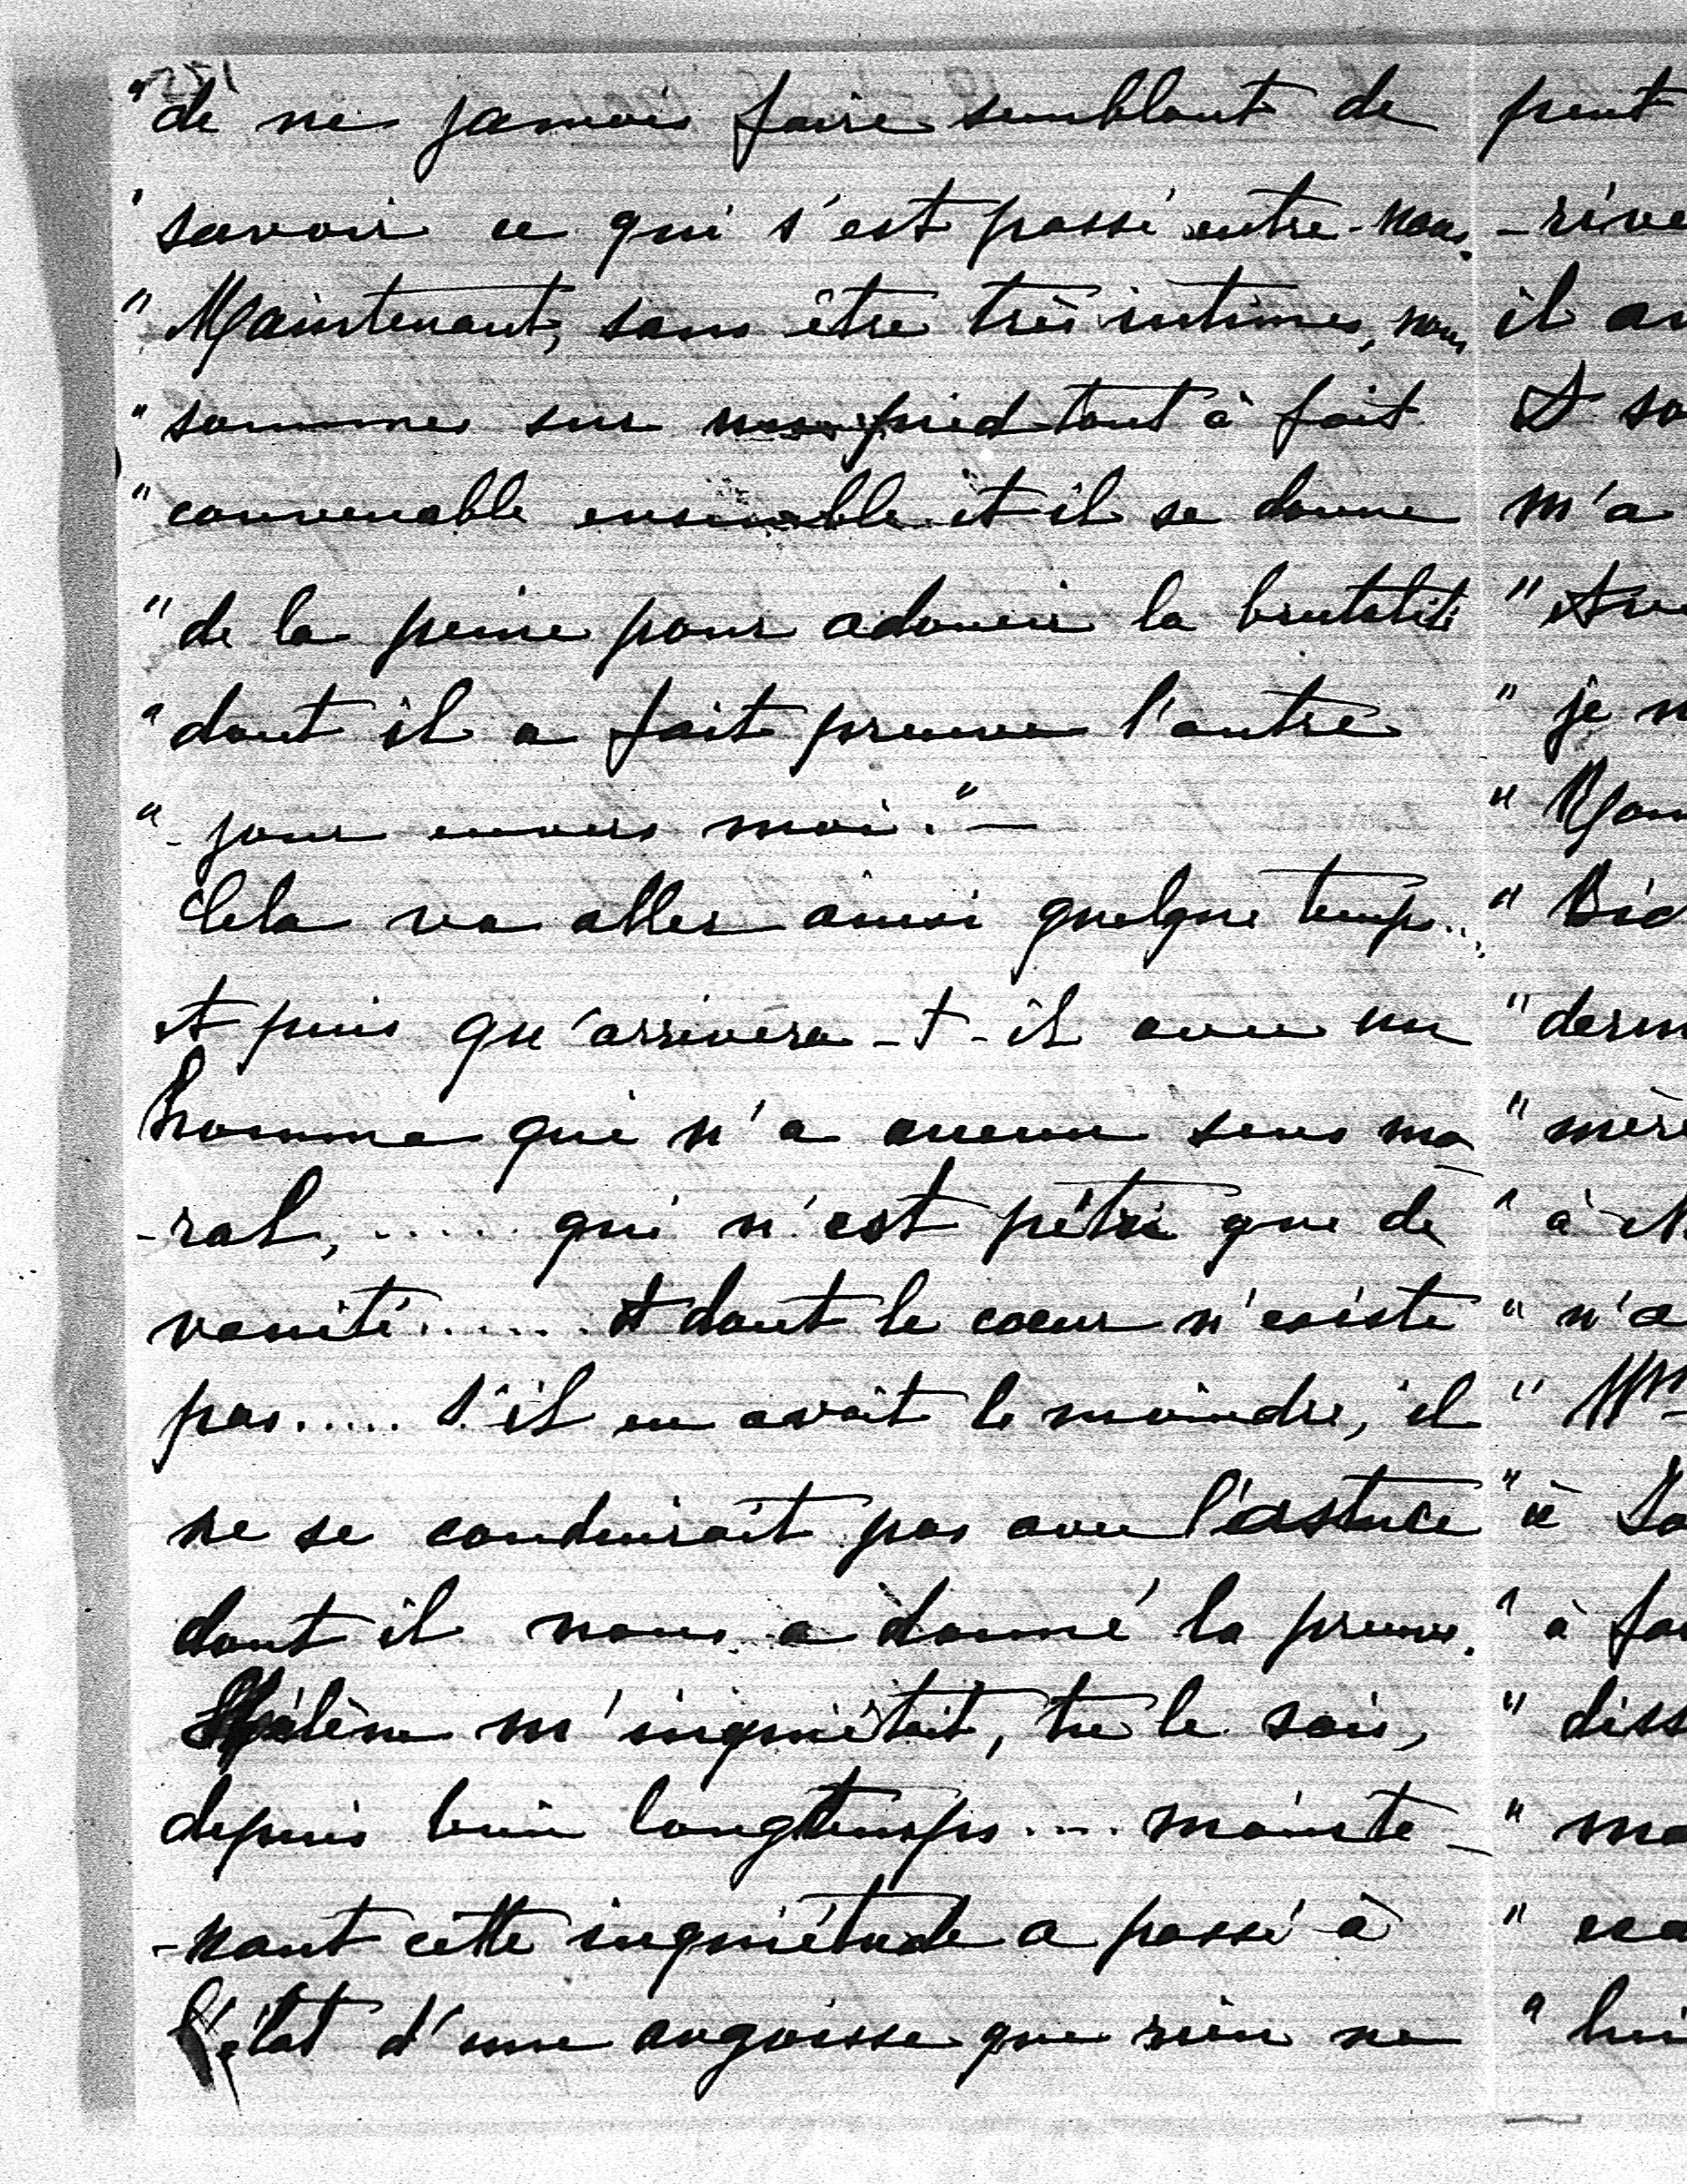 "de ne jamais faire semblant de
"savoir ce qui s'est passé entre-nous.
"Maintenant, sans être très intimes, nous
"sommes sur un pied tout à fait
"convenable ensemble et il se donne
"de la peine pour adoucir la brutalité
"dont il a fait preuve l'autre
"-jour envers moi." —
Cela va aller ainsi quelque temps...
et puis qu'arrivera-t-il avec un
homme qui n'a aucun sens mo
-ral, ..... qui n'est pétri que de
vanité ...... et dont le coeur n'existe
pas ..... S'il en avait le moindre, il
ne se conduirait pas avec l'astuce
dont il nous a donné la preuve.
Hélène m'inquiétait, tu le sais,
depuis bien longtemps .... mainte-
-nant cette inquiétude a passé à
l'état d'une angoisse que rien ne
peut
-rive
il av
Et so
m'a
"
"je n
"
"
"
"mère
"à
"n'a
"M
"à
"à fai
"diss
"ma
"
"lui